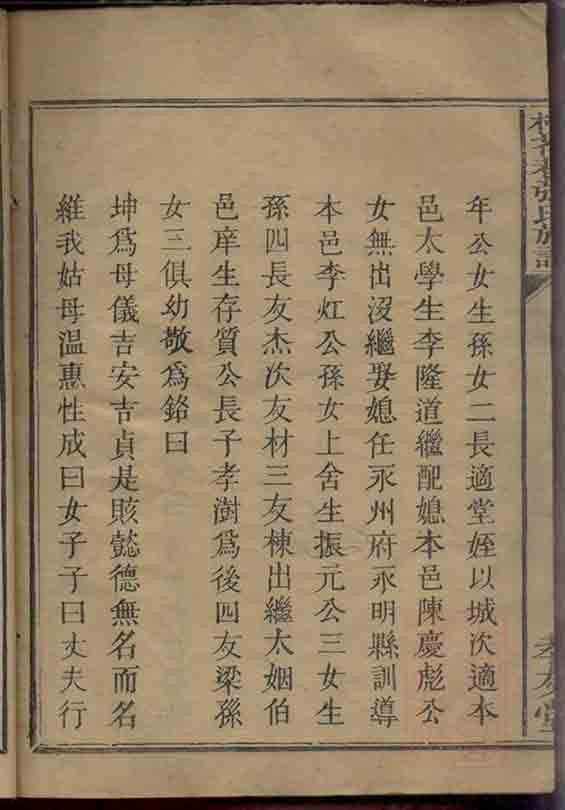 張氏族譜
孝友堂
年公女生孫女二長適堂姪以城次適本
邑太學生李隆道繼配媳本邑陳慶彪公
女無出沒繼娶媳任永州府永明縣訓導
本邑李灴公孫女上舍生振元公三女生
孫四長友杰次友材三友棟出繼太姻伯
邑庠生存質公長子孝澍為後四友梁孫
女三俱幼敬爲銘曰
坤爲母儀吉安吉貞是賅懿德無名而名
維我姑母溫惠性成曰女子子曰丈夫行